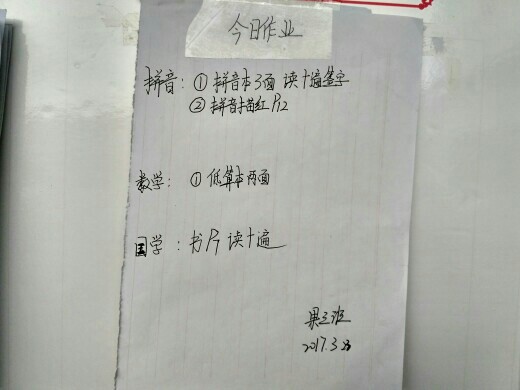 今日作业
拼音：①拼音本3面 读十遍签字
②拼音描红P12
数学：①低算本两面
国学：书P7 读十遍
果三班
2017.3.23